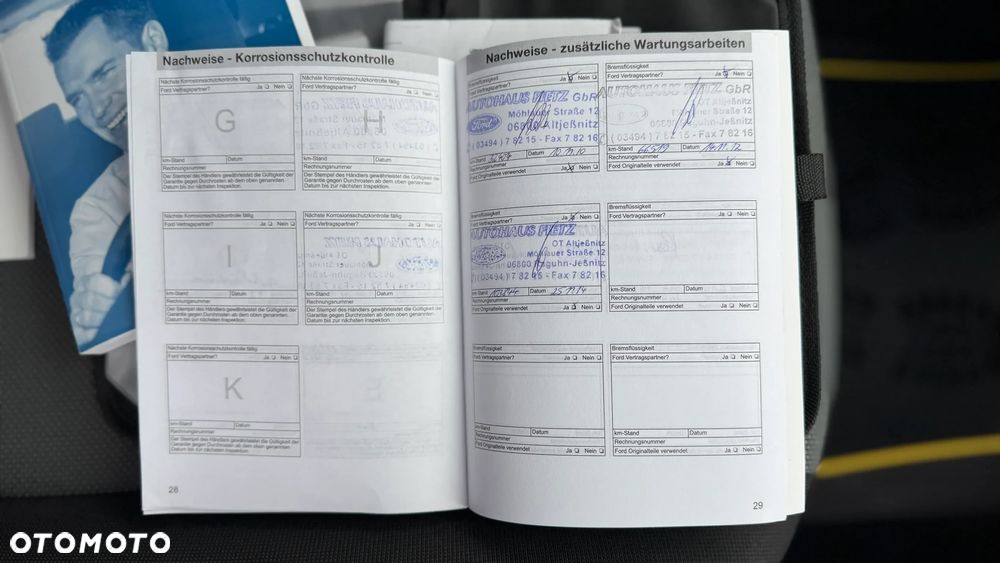 Nachweise - Korrosionsschutzkontrolle
Nächste Korrosionsschutzkontrolle fällig
Ford Vertragspartner? Ja Nein
G
km-Stand Datum
Rechnungsnummer
Der Stempel des Händlers gewährleistet die Gültigkeit der
Garantie gegen Durchrosten ab dem oben genannten
Datum bis zur nächsten Inspektion.
Nächste Korrosionsschutzkontrolle fällig
Ford Vertragspartner? Ja Nein
H
km-Stand Datum
Rechnungsnummer
Der Stempel des Händlers gewährleistet die Gültigkeit der
Garantie gegen Durchrosten ab dem oben genannten
Datum bis zur nächsten Inspektion.
Nächste Korrosionsschutzkontrolle fällig
Ford Vertragspartner? Ja Nein
I
km-Stand Datum
Rechnungsnummer
Der Stempel des Händlers gewährleistet die Gültigkeit der
Garantie gegen Durchrosten ab dem oben genannten
Datum bis zur nächsten Inspektion.
Nächste Korrosionsschutzkontrolle fällig
Ford Vertragspartner? Ja Nein
J
km-Stand Datum
Rechnungsnummer
Der Stempel des Händlers gewährleistet die Gültigkeit der
Garantie gegen Durchrosten ab dem oben genannten
Datum bis zur nächsten Inspektion.
Nächste Korrosionsschutzkontrolle fällig
Ford Vertragspartner? Ja Nein
K
km-Stand Datum
Rechnungsnummer
Der Stempel des Händlers gewährleistet die Gültigkeit der
Garantie gegen Durchrosten ab dem oben genannten
Datum bis zur nächsten Inspektion.
28
Nachweise - zusätzliche Wartungsarbeiten
Bremsflüssigkeit
Ja Nein
AUTOHAUS PIETZ GbR
Möhlauer Straße 12
Ford
06800 Altjeßnitz
(03494) 7 82 15 - Fax 7 82 16
km-Stand Datum 10.11.10
Rechnungsnummer
Ford Originalteile verwendet Ja Nein
Bremsflüssigkeit
Ford Vertragspartner? Ja Nein
AUTOHAUS PIETZ GbR
OT Altjeßnitz
Straße 12
(03494) 7 82 15 - Fax 7 82 16
km-Stand 66519 Datum 14.11.12
Rechnungsnummer
Ford Originalteile verwendet Ja Nein
Bremsflüssigkeit
Ja Nein
AUTOHAUS PIETZ
OT Altjeßnitz
Möhlauer Straße 12
06800 Raguhn-Jeßnitz
(03494) 7 82 15 - Fax 7 82 16
km-Stand Datum 25.11.14
Rechnungsnummer
Ford Originalteile verwendet Ja Nein
Bremsflüssigkeit
Ford Vertragspartner? Ja Nein
km-Stand Datum
Rechnungsnummer
Ford Originalteile verwendet Ja Nein
Bremsflüssigkeit
Ford Vertragspartner? Ja Nein
km-Stand Datum
Rechnungsnummer
Ford Originalteile verwendet Ja Nein
Bremsflüssigkeit
Ford Vertragspartner? Ja Nein
km-Stand Datum
Rechnungsnummer
Ford Originalteile verwendet Ja Nein
29
OTOMOTO